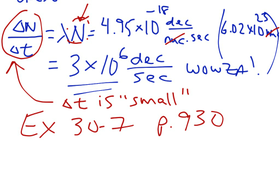 ΔN/Δt = λN = 4.95×10⁻¹⁸ dec/nuc.sec (6.02×10²³ nuc)
= 3×10⁶ dec/sec WOWZA!
Δt is "small"
Ex 30-7 p.930